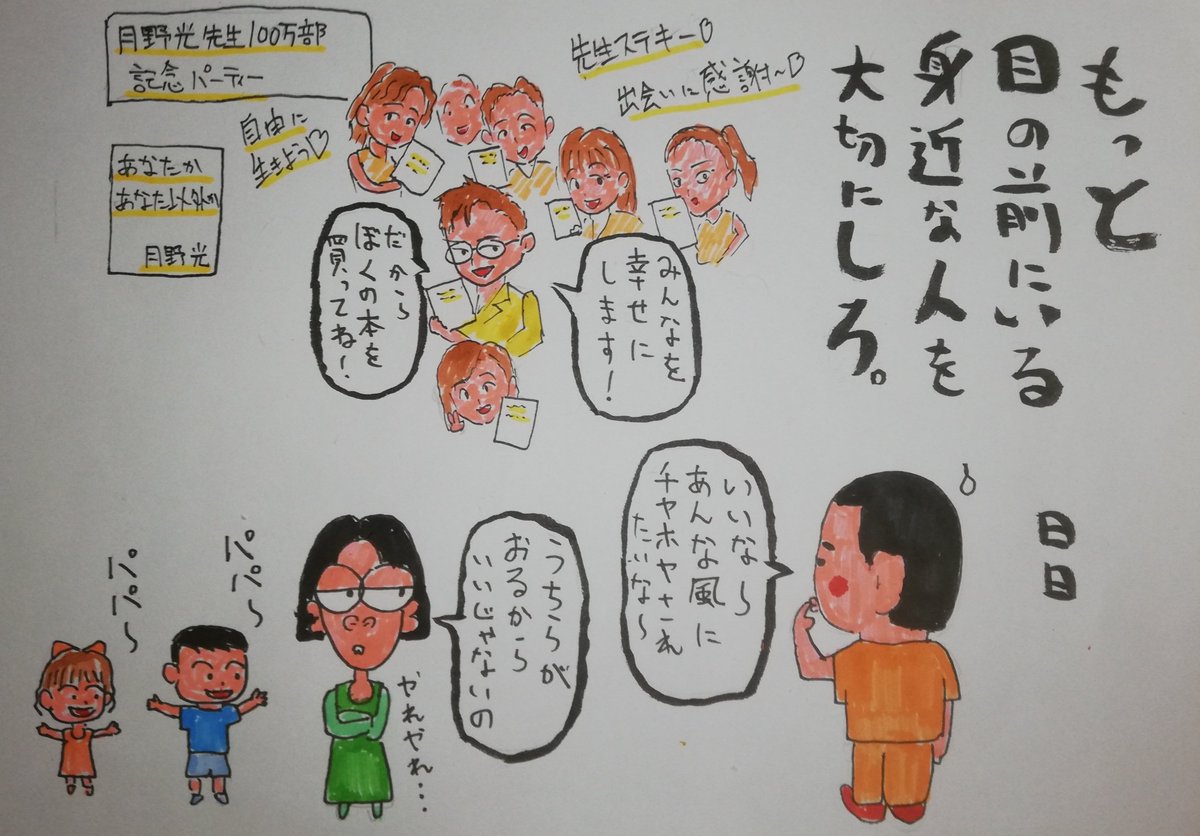 もっと
目の前にいる
身近な人を
大切にしろ。
日日
月野光先生100万部
記念パーティー
あなたか
あなた以外か
月野光
自由に
生きよう
先生ステキー
出会いに感謝〜
みんなを
幸せに
します!
だから
ぼくの本を
買ってね!
いいなら
あんな風に
チヤホヤされ
たいな〜
うちらが
おるから
いいじゃないの
やれやれ…
パパ〜
パパ〜